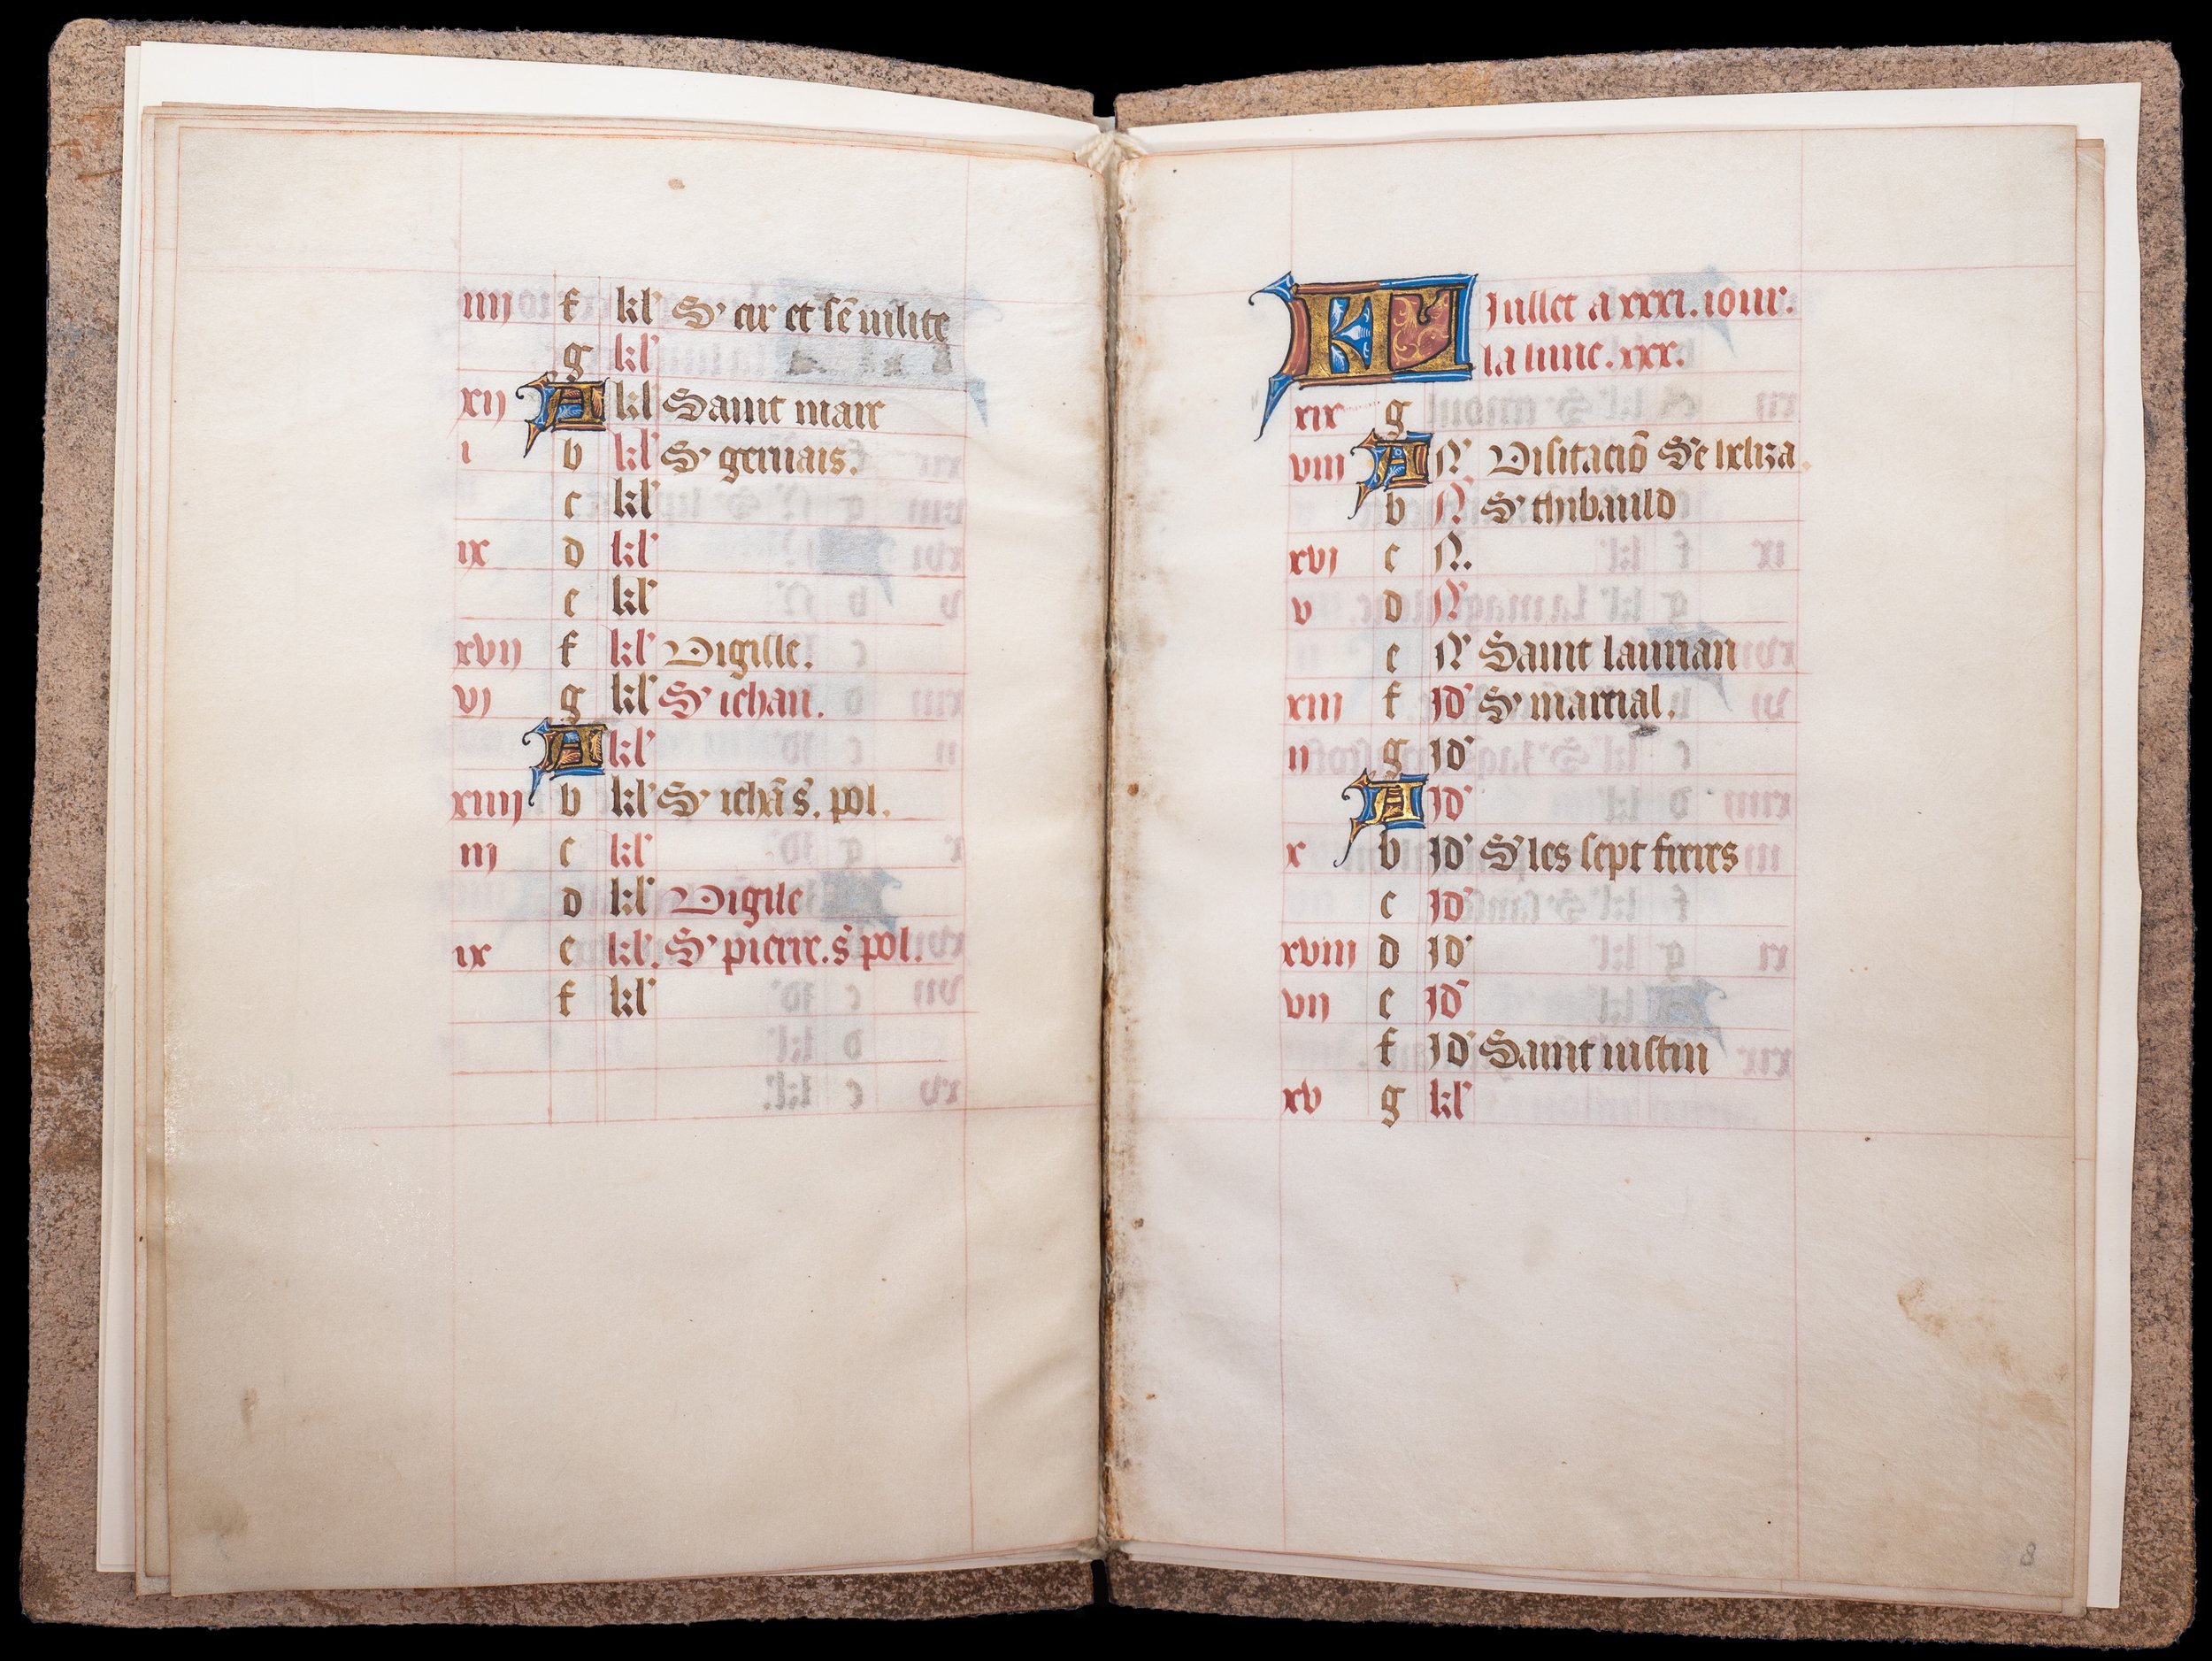 iiij f kl' S' cir et se iulite
g kl'
xij A kl Saint marc
i b kl' S' geruais.
c kl'
ix d kl'
e kl'
xvij f kl' Vigille.
vj g kl' S' iehan.
A kl'
xiiij b kl' S' iehā s. pol.
iij c kl'
d kl' Vigile
ix e kl'. S' pierre. s pol.
f kl'
KL Juillet a xxxi. iour.
la lune. xxx.
xix g
viii A N' Visitaciō Se heliza
b N' S' thibauld
xvj c N.
v d N'
e N' Saint lauman
xiij f jd' S' martial.
ij g jd'
A jd'
x b jd' S' les sept freres
c jd'
xviii d jd'
vij e jd'
f jd' Saint iustin
xv g kl'
8